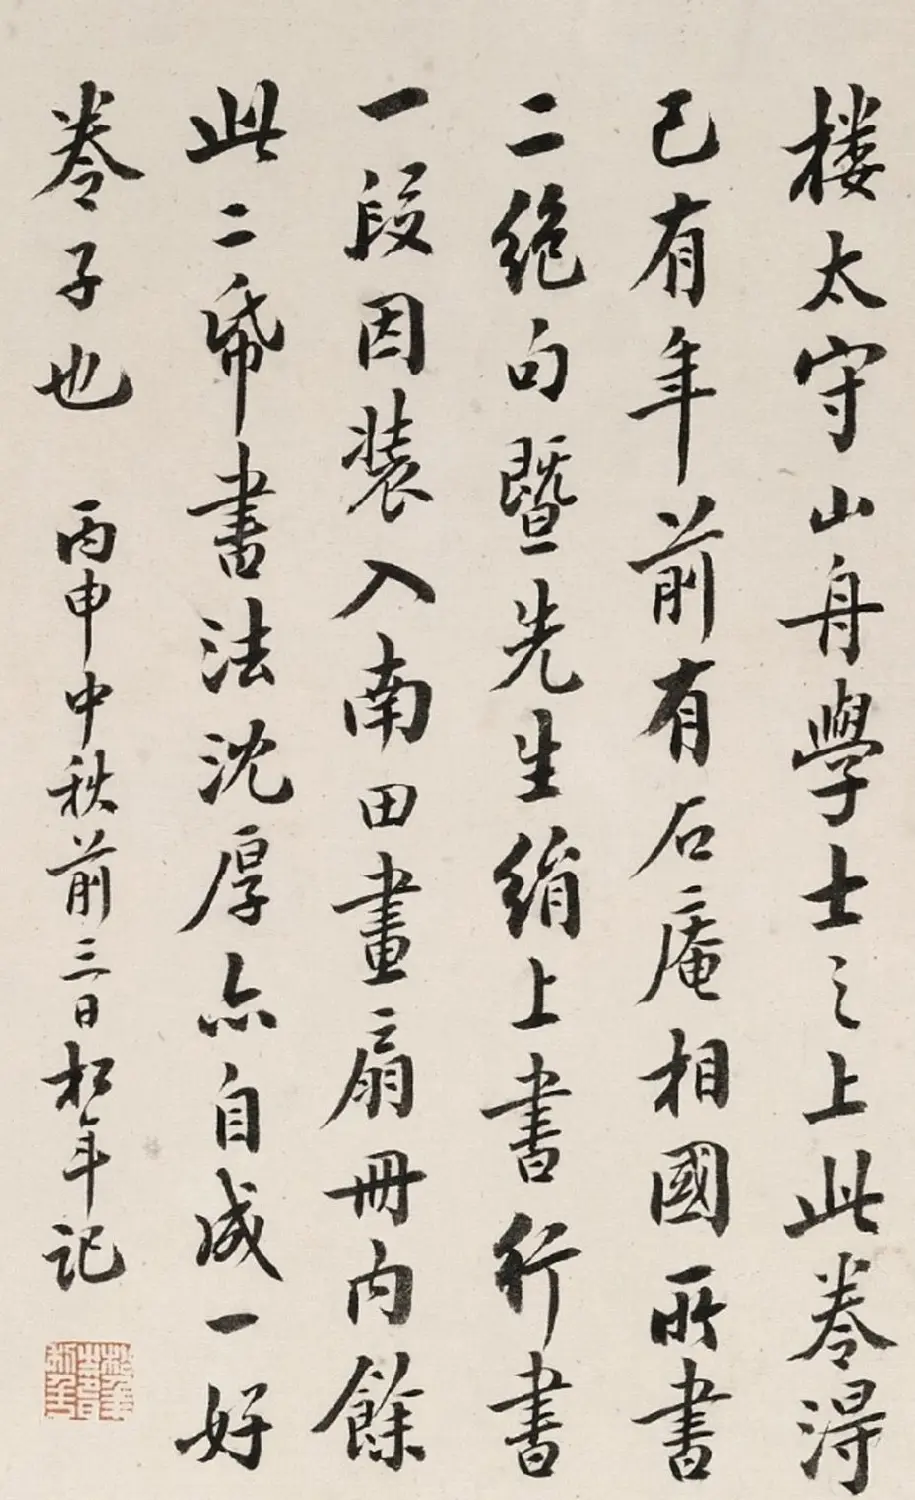 楼太守山舟學士之上此卷淂
已有年前有石庵相國所書
二絶句暨先生絹上書行書
一段因装入南田畫扇冊内餘
此二帋書法沈厚亦自成一好
卷子也 丙申中秋前三日松年記